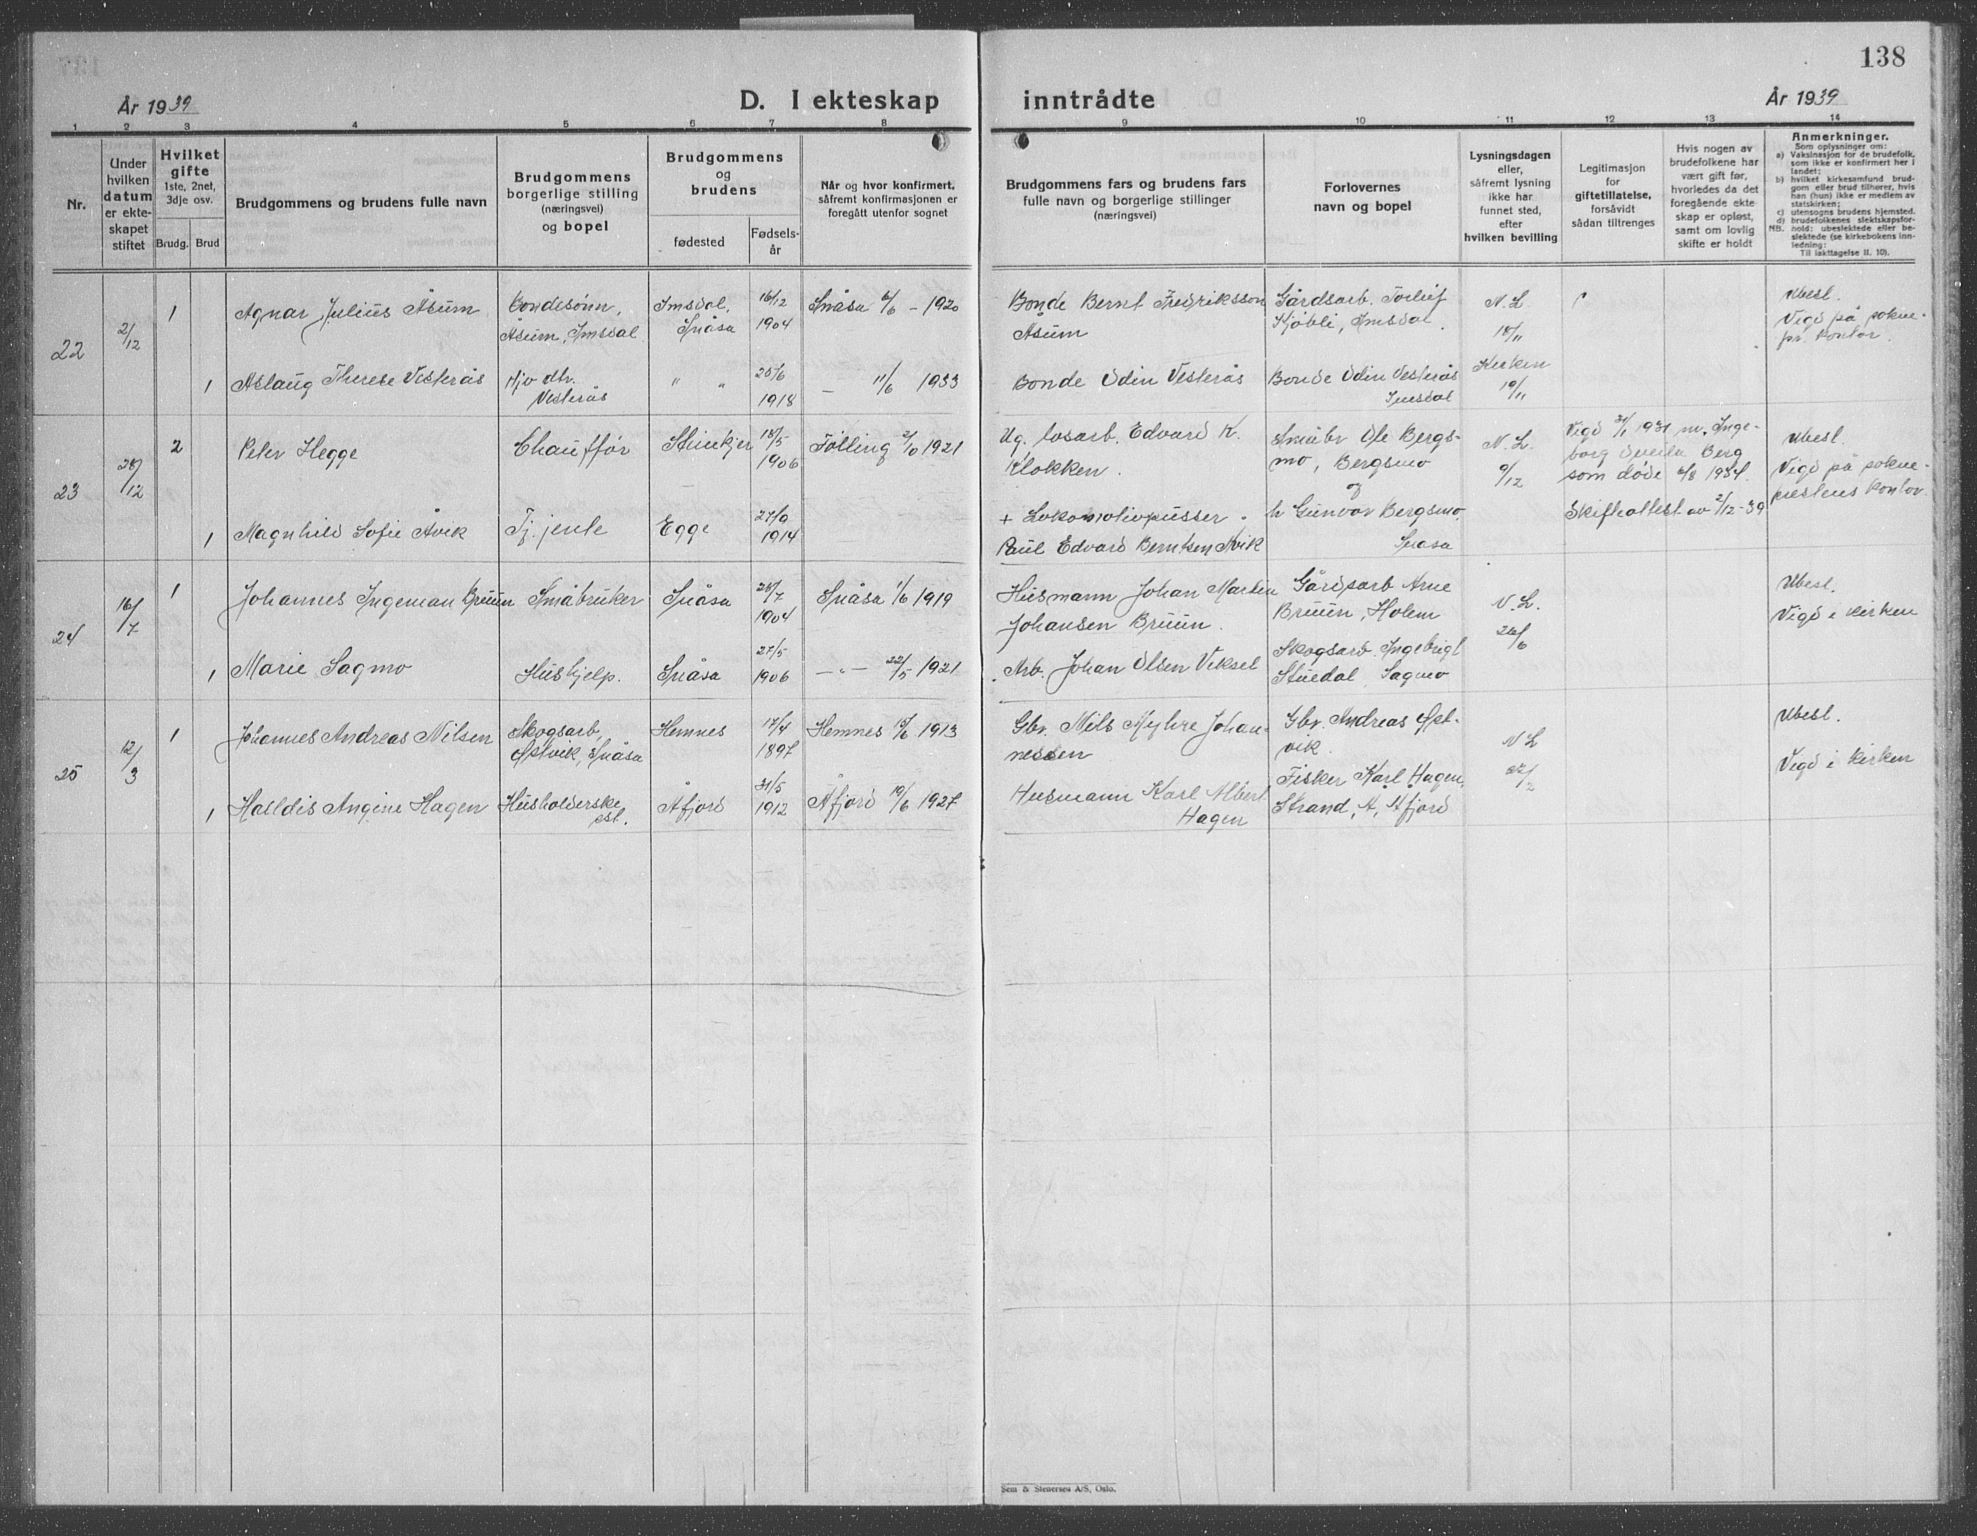 138
År 1939
D. I ekteskap inntrådte
År 1939
1 2 3 4 5 6 7 8 9 10 11 12 13 14
Nr.
Under
hvilken
datum
er ekte-
skapet
stiftet
Hvilket
gifte
1ste, 2net,
3dje osv.
Brudg. Brud
Brudgommens og brudens fulle navn
Brudgommens
borgerlige stilling
(næringsvei)
og bopel
Brudgommens
og
brudens
fødested
Fødsels-
år
Når og hvor konfirmert,
såfremt konfirmasjonen er
foregått utenfor sognet
Brudgommens fars og brudens fars
fulle navn og borgerlige stillinger
(næringsvei)
Forlovernes
navn og bopel
Lysningsdagen
eller,
såfremt lysning
ikke har
funnet sted,
efter
hvilken bevilling
Legitimasjon
for
giftetillatelse,
forsåvidt
sådan tiltrenges
Hvis nogen av
brudefolkene har
vært gift før,
hvorledes da det
foregående ekte
skap er opløst,
samt om lovlig
skifte er holdt
Anmerkninger.
Som oplysninger om:
a) Vaksinasjon for de brudefolk,
som ikke er konfirmert her i
landet;
b) hvilket kirkesamfund brud-
gom eller brud tilhører, hvis
han (hun) ikke er medlem av
statskirken;
c) utensogns brudens hjemsted.
d) brudefolkenes slektskapsfor-
NB. hold: ubeslektede eller be-
slektede (se kirkebokens inn-
ledning:
Til iakttagelse II. 10).
22
2/12
1
Agnar Julius Åsum
Bondesønn,
Åsum, Imsdal
Imsdal,
Snåsa
16/12
1904
Snåsa 6/6 - 1920
Bonde Bernt Fredriksson
Åsum
Gårdsarb. Torleif
Kjøbli, Imsdal.
N. L.
18/11
Ubesl.
Vigd på sokne-
pr. kontor.
1
Aslaug Therese Vesterås
Hjv. dtr.
Vesterås
" "
25/6
1918
— 11/6 1933
Bonde Odin Vesterås
Bonde Odin Vesterås
Imsdal
Kirken
19/11
23
28/12
2
Peter Hegge
Chauffør
Steinkjer
18/5
1906
Følling 2/10 1921
Ug. losarb. Edvard K.
Klokken.
Småbr Ole Bergs-
mo, Bergsmo
og
N. L.
9/12
Vigd 31/1 1931 m. Inge-
borg Sveila Berg
som døde 6/8 1934.
Skifteattest av 2/12-39
Ubesl.
Vigd på sokne-
prestens kontor.
1
Magnhild Sofie Åvik
Tj.jente
Egge
27/9
1914
+ Lokomotivpusser.
Paul Edvard Berntsen Åvik
h Gunvor Bergsmo,
Snåsa
24
16/7
1
Johannes Ingeman Bruun
Småbruker
Snåsa
28/7
1904
Snåsa 1/6 1919
Husmann Johan Martin
Johansen Bruun.
Gårdsarb Arne
Bruun, Holem
N. L.
26/6
Ubesl.
Vigd i kirken
1
Marie Sagmo
Hushjelp.
Snåsa
27/5
1906
—"— 22/5 1921
Arb. Johan Olsen Veksel
Skogsarb. Ingebrigt
Stuedal, Sagmo
25
12/3
1
Johannes Andreas Nilsen
Skogsarb,
Østvik, Snåsa
Hemnes
17/4
1897
Hemnes 15/6 1913
Gbr. Nils Myhre Johan-
nessen
Gbr. Andreas Øst-
vik.
N L
Ubesl.
Vigd i kirken
1
Halldis Angine Hagen
Husholderske
Åfjord
31/5
1912
Åfjord 19/6 1927
Husmann Karl Albert
Hagen
Fisker Karl Hagen,
Strand, A, Åfjord
Sem & Stenersen A/S, Oslo.